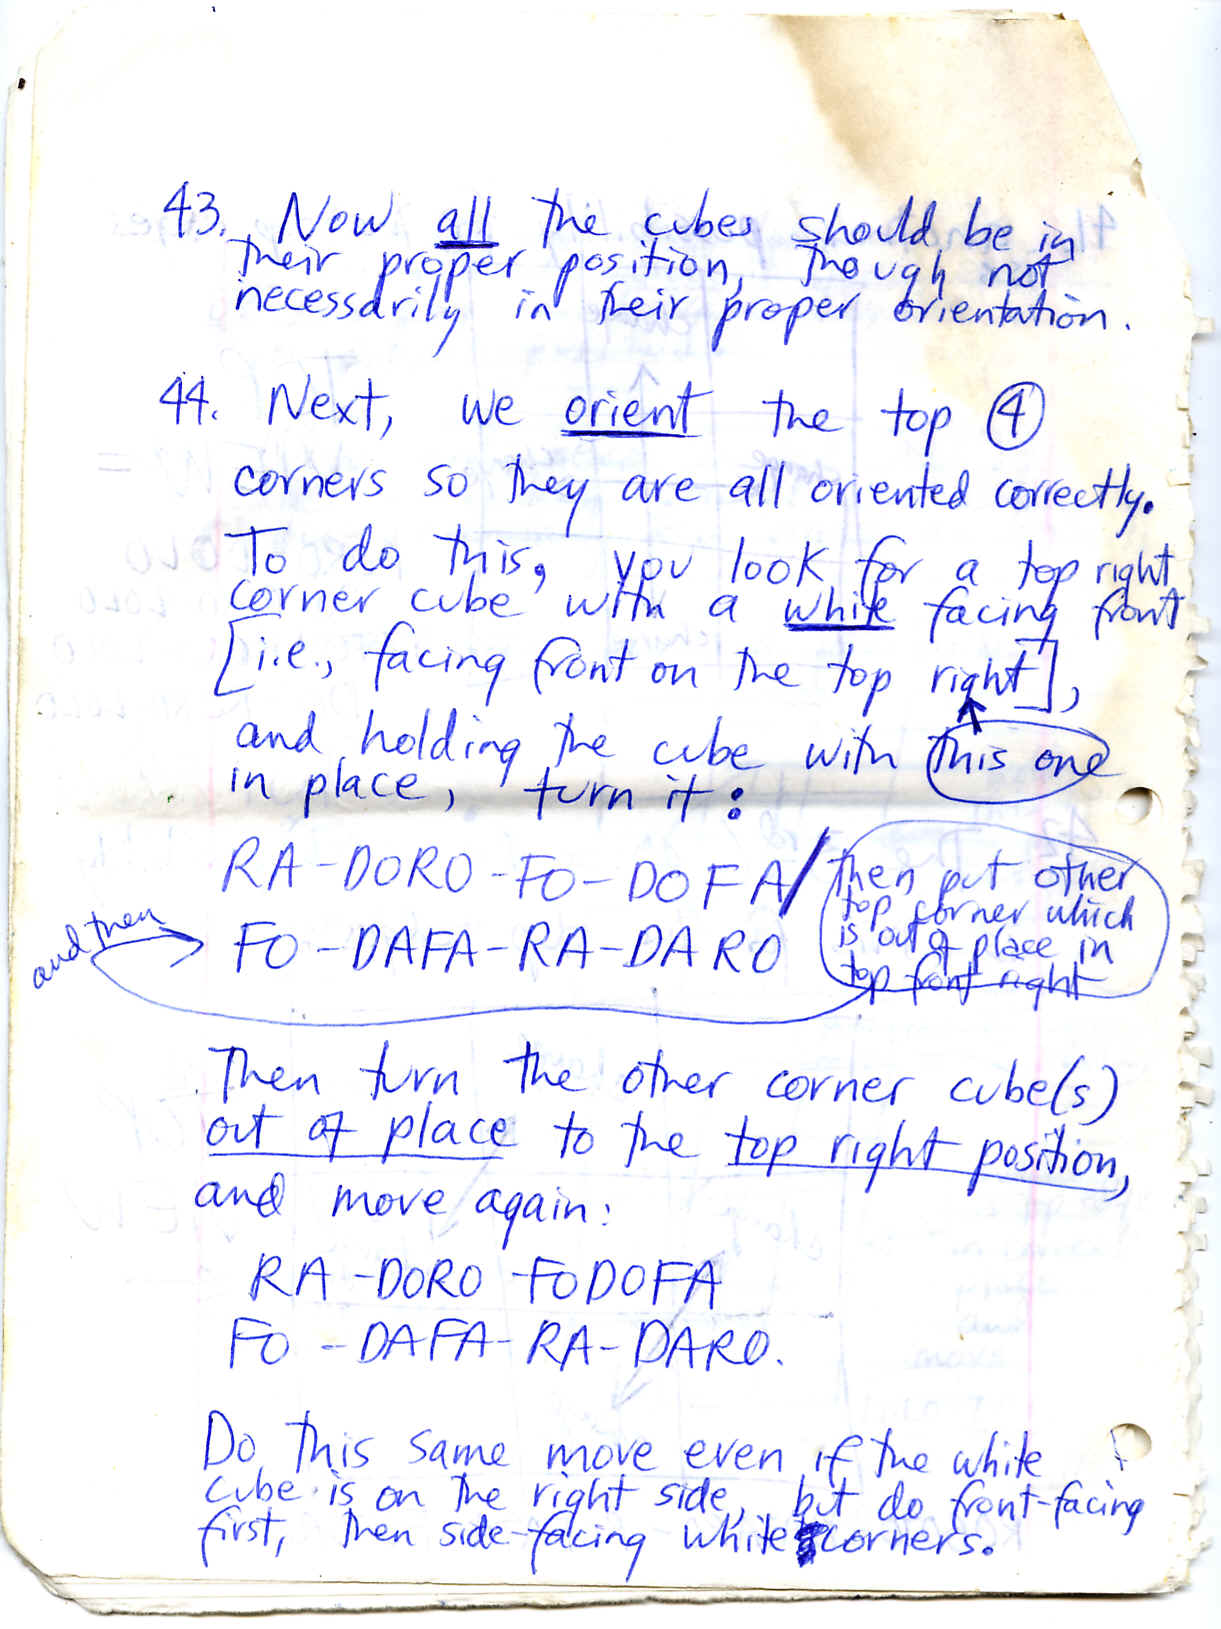 43. Now all the cubes should be in
their proper position, though not
necessarily in their proper orientation.
44. Next, we orient the top 4
corners so they are all oriented correctly.
To do this, you look for a top right
corner cube with a white facing front
[i.e., facing front on the top right],
and holding the cube with this one
in place, turn it:
RA-DORO-FO-DOFA/
then put other
top corner which
is out of place in
top front right
and then
FO-DAFA-RA-DARO
Then turn the other corner cube(s)
out of place to the top right position,
and move again:
RA-DORO-FODOFA
FO-DAFA-RA-DARO.
Do this same move even if the white
cube is on the right side, but do front-facing
first, then side-facing white corners.